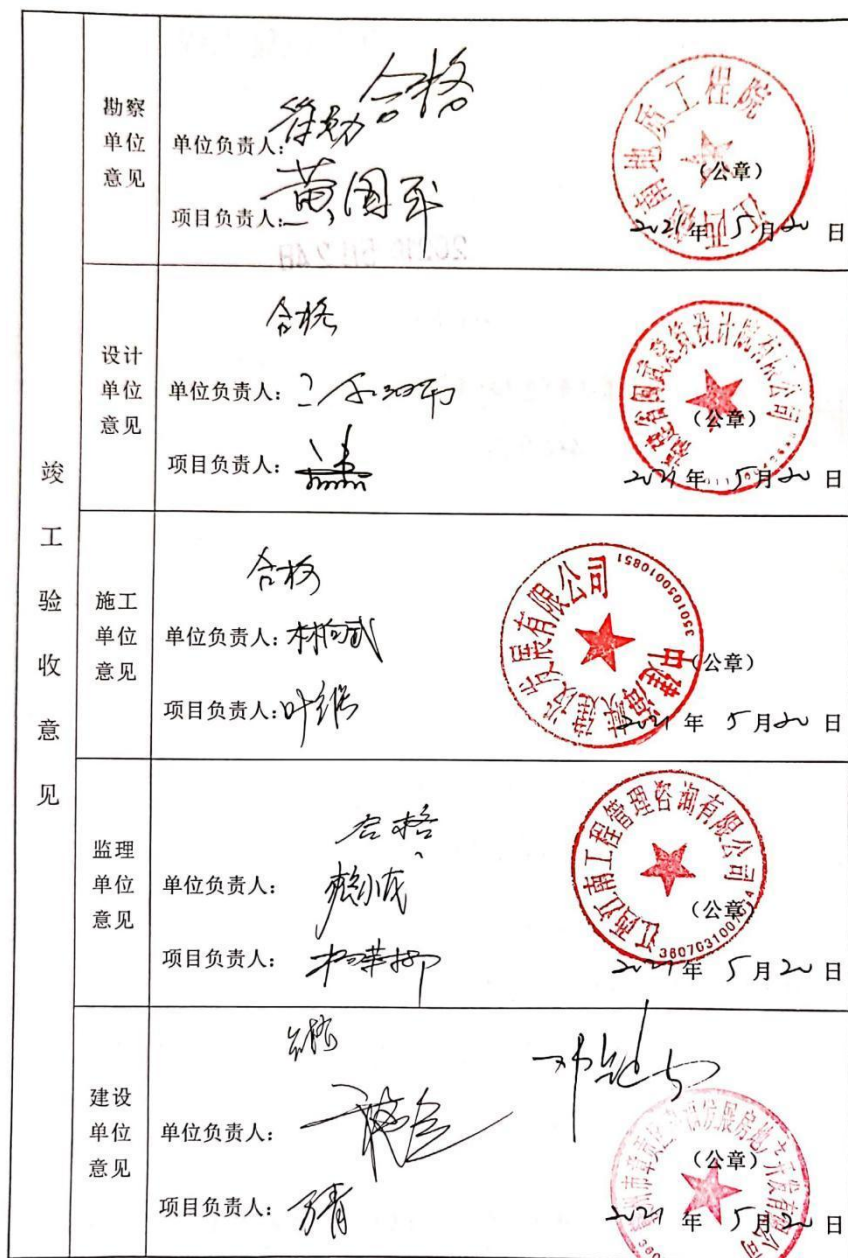 竣工验收意见
勘察单位意见
合格
单位负责人：
项目负责人：黄国平
江西赣南地质工程院
（公章）
2021年5月20日
设计单位意见
合格
单位负责人：
项目负责人：
福建省国武建筑设计院有限公司
（公章）
2021年5月20日
施工单位意见
合格
单位负责人：
项目负责人：
中建海峡建设发展有限公司
35010500010851
（公章）
2021年5月20日
监理单位意见
合格
单位负责人：
项目负责人：
江西江南工程管理咨询有限公司
（公章）
2021年5月20日
建设单位意见
合格
单位负责人：
项目负责人：万青
（公章）
2021年5月20日